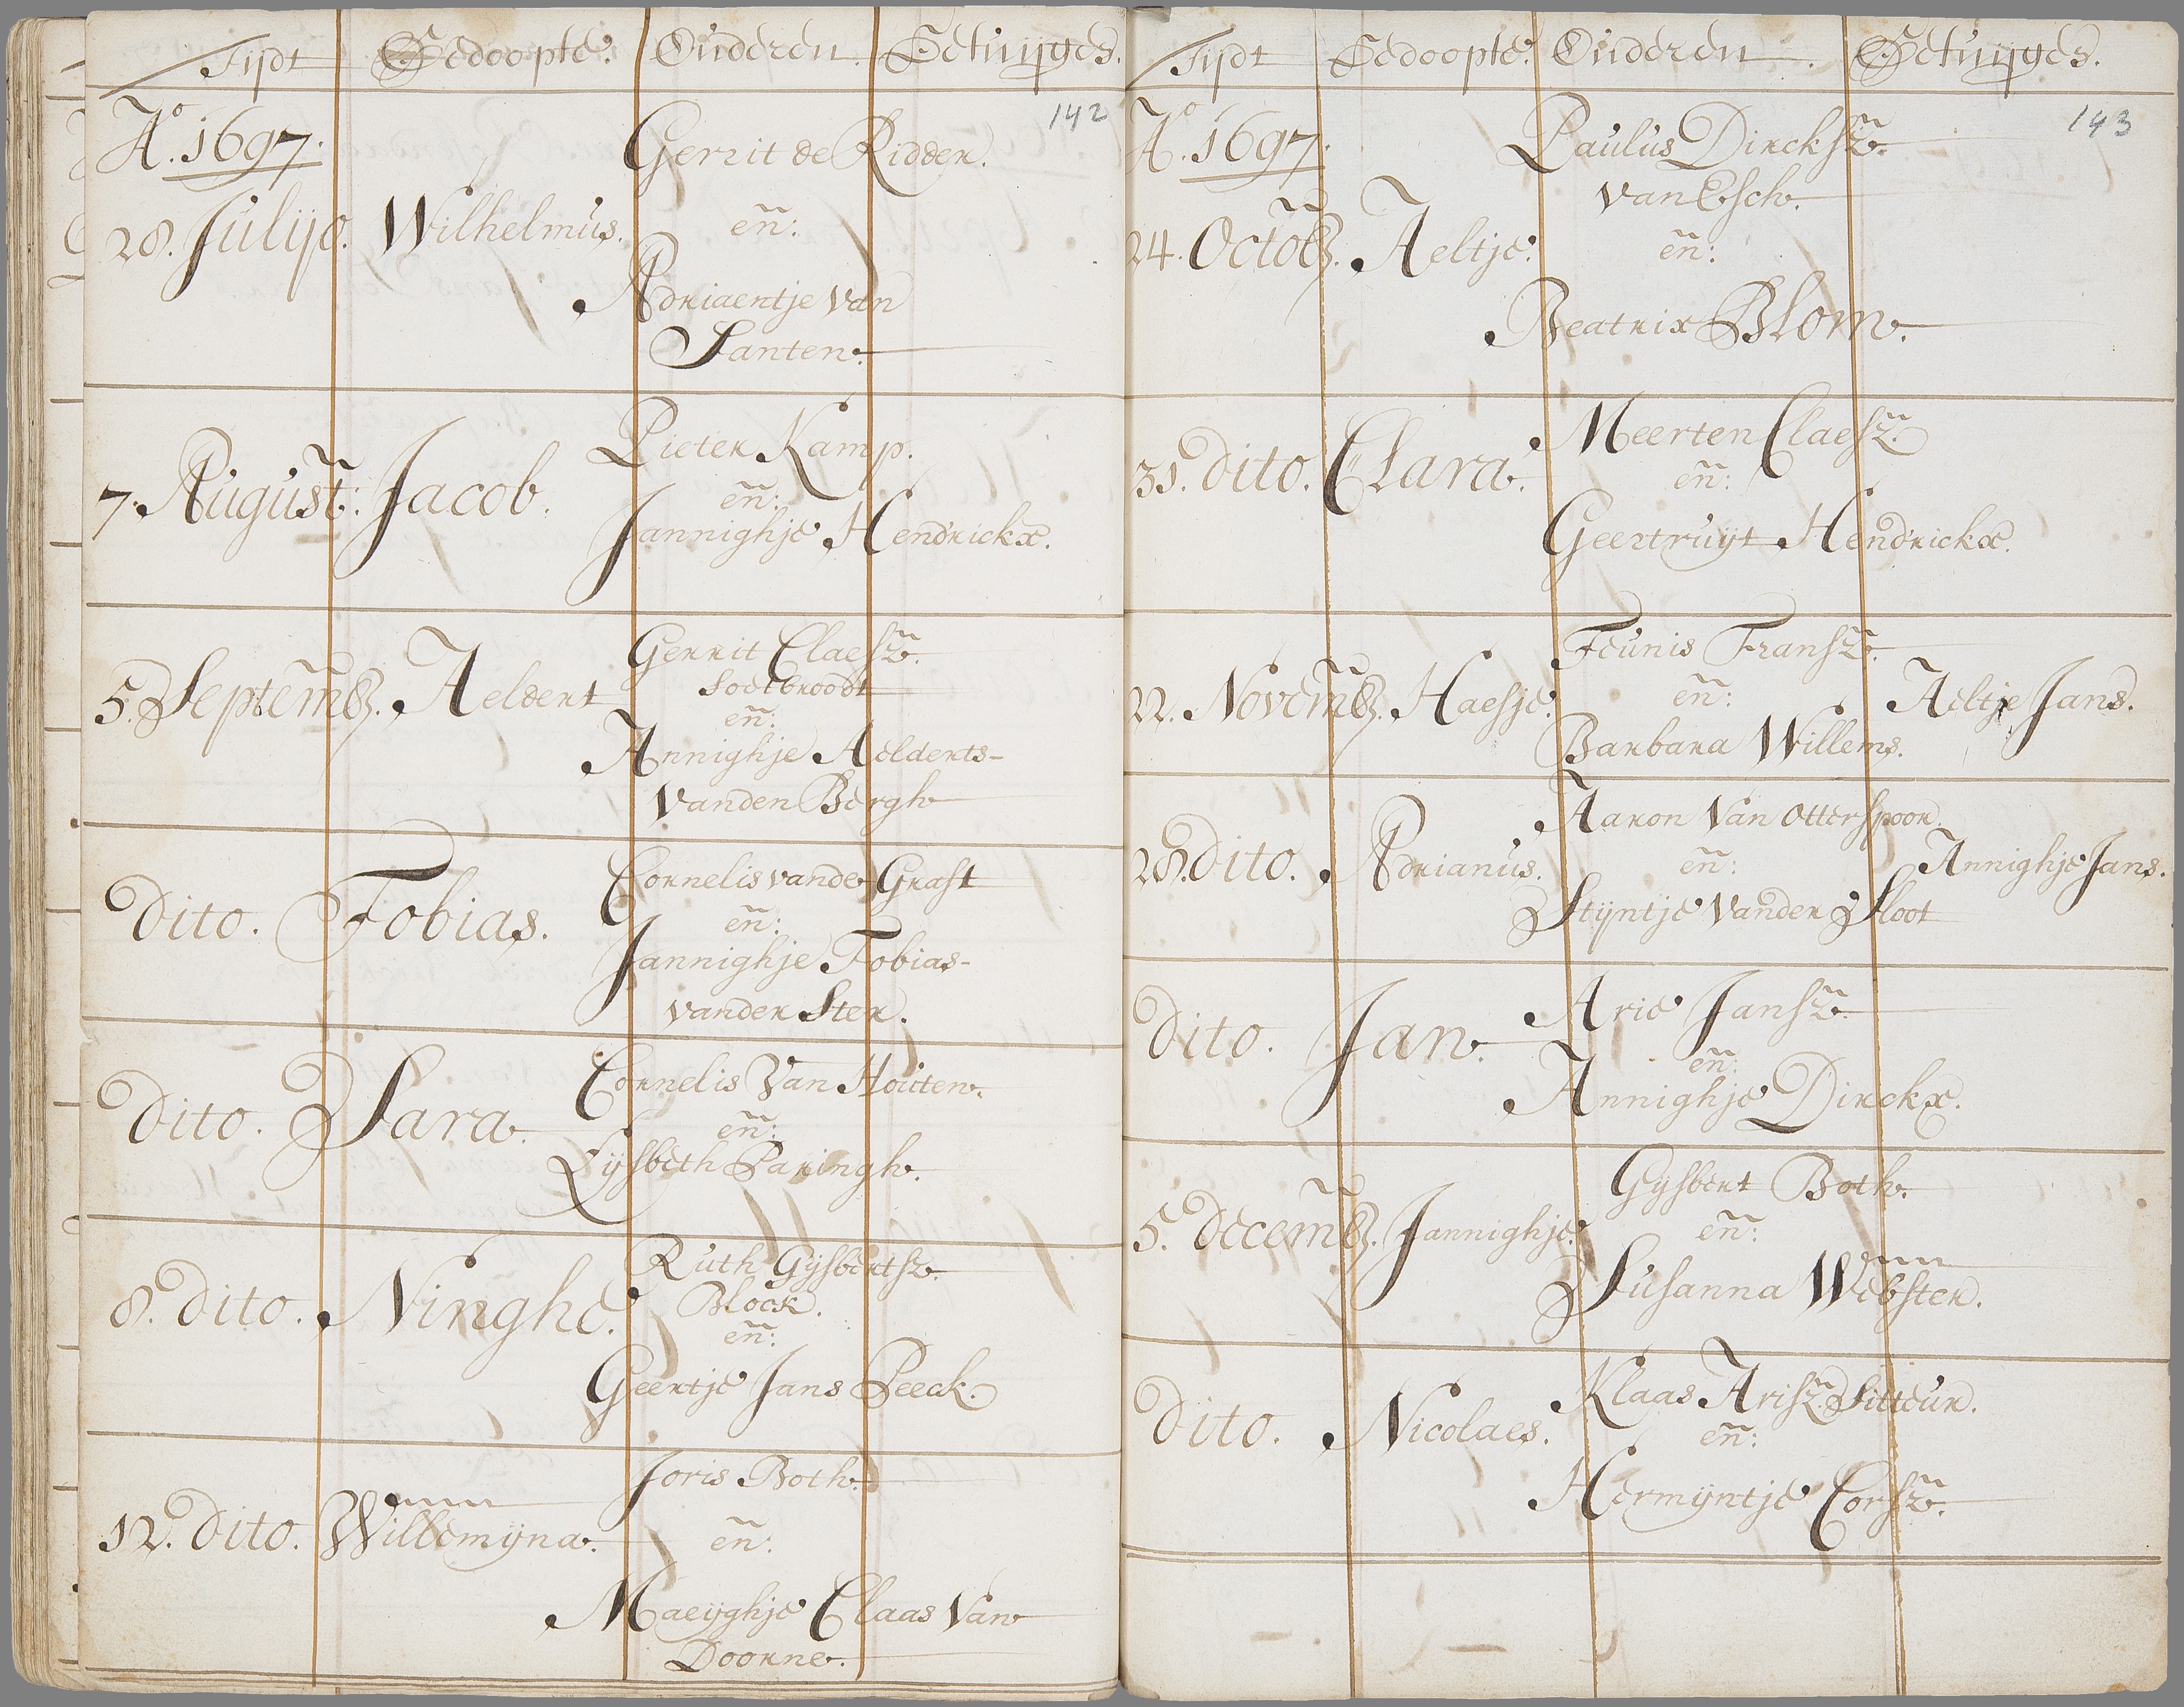 Tijdt Gedoopte. Ouderen. Getuijges.
142
Ao. 1697.
Gerrit de Ridder.
28. Julijo. Wilhelmus. en:
Adriaentje van
Santen.
Pieter Kamp.
7. August: Jacob. en:
Jannighje Hendrickx.
Gerrit Claesz.
Soetbroodt
5. Septemb. Aeldert en:
Annighje Aelderts-
vanden Bergh
Cornelis vande Graft
Dito. Tobias. en:
Jannighje Tobias-
vander Ster.
Cornelis Van Houten.
Dito. Sara. en:
Lijsbeth Paringh.
Ruth Gijsbertsz.
Block.
8. Dito. Ninghe. en:
Geertje Jans Peeck.
Joris Both.
12. Dito. Willemijna. en:
Maeijghje Claas Van
Doorne.
Tijdt Gedoopte. Ouderen. Getuijges.
143
Ao. 1697.
Paulus Dircksz.
van Esch.
24. Octob. Aeltje. en:
Beatrix Blom.
Meerten Claesz.
31. Dito. Clara. en:
Geertruijt Hendrickx.
Teunis Fransz.
22. Novemb. Haesje. en: Aeltje Jans.
Barbara Willems.
Aaron Van Otterspoor.
28. Dito. Adrianus. en: Annighje Jans.
Stijntje Vander Sloot
Arie Jansz.
Dito. Jan. en:
Annighje Dirckx.
Gijsbert Both.
5. Decemb. Jannighje. en:
Susanna Webster.
Klaas Arisz. Sitteur.
Dito. Nicolaes. en:
Hermijntje Corsz.